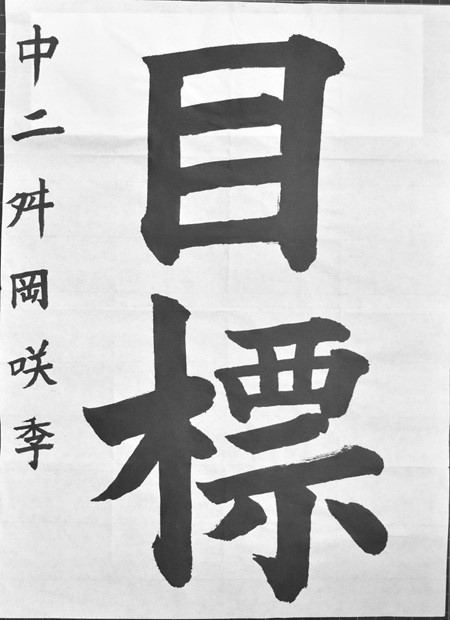 目標
中二 舛岡咲季